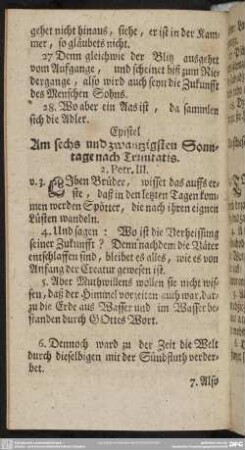 gehet nicht hinaus, siehe, er ist in der Kam-
mer, so gläubets nicht.
27 Denn gleichwie der Blitz ausgehet
vom Aufgange, und scheinet biß zum Nie-
dergange, also wird auch seyn die Zukunfft
des Menschen Sohns.
28. Wo aber ein Aas ist, da sammlen
sich die Adler.
Epistel
Am sechs und zwanzigsten Sonn-
tage nach Trinitatis.
2. Petr. III.
v. 3. Lieben Brüder, wisset das auffs er-
ste, daß in den letzten Tagen kom-
men werden Spötter, die nach ihren eignen
Lüsten wandeln.
4. Und sagen: Wo ist die Verheissung
seiner Zukunfft? Denn nachdem die Väter
entschlaffen sind, bleibet es alles, wie es von
Anfang der Creatur gewesen ist.
5. Aber Muthwillens wollen sie nicht wis-
sen, daß der Himmel vorzeiten auch war, dar-
zu die Erde aus Wasser und im Wasser be-
standen durch GOttes Wort.
6. Dennoch ward zu der Zeit die Welt
durch dieselbigen mit der Sündfluth verder-
bet.
7. Also